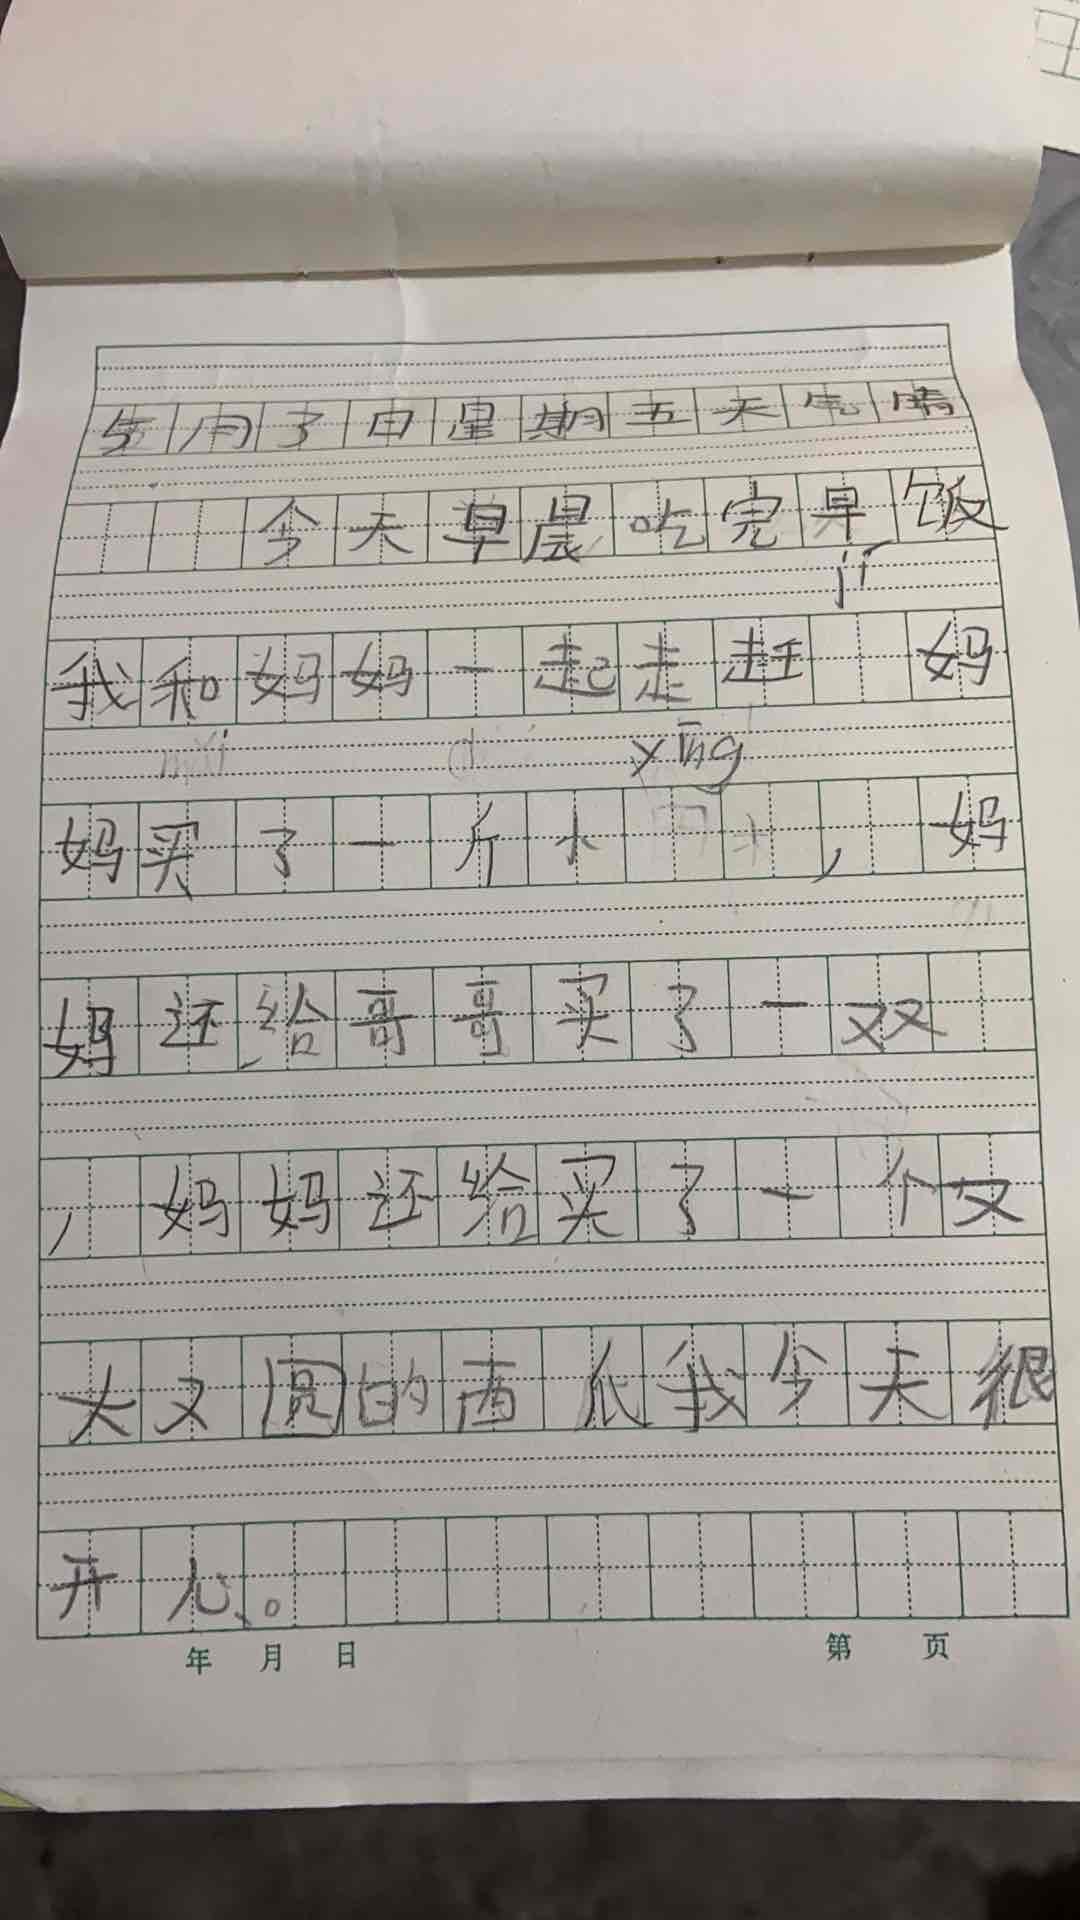 月 日星期五天气晴
今天早晨吃完早饭
jí
我和妈妈一起走赶 妈
yīng
妈买了一斤小 ，妈
妈还给哥哥买了一双
，妈妈还给买了一个又
大又圆的西瓜我今天很
开心。
年 月 日 第 页